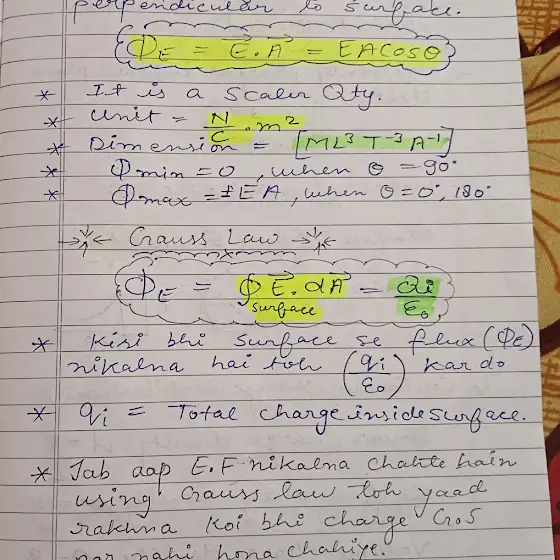 perpendicular to surface.
Φ_E = E⃗.A⃗ = EACosθ
* It is a Scaler Qty.
* Unit = N/C . m²
* Dimension = [ML³T⁻³A⁻¹]
* Φmin = 0, when θ = 90°
* Φmax = ±EA, when θ = 0°, 180°
Gauss Law
Φ_E = ∮ E⃗.dA⃗ = Qi/ε₀
surface
* Kisi bhi surface se flux (Φ_E)
nikalna hai toh (qi/ε₀) kar do
* qi = Total charge inside surface.
* Jab aap E.F nikalna chahte hain
using Gauss law toh yaad
rakhna koi bhi charge G.S
par nahi hona chahiye.